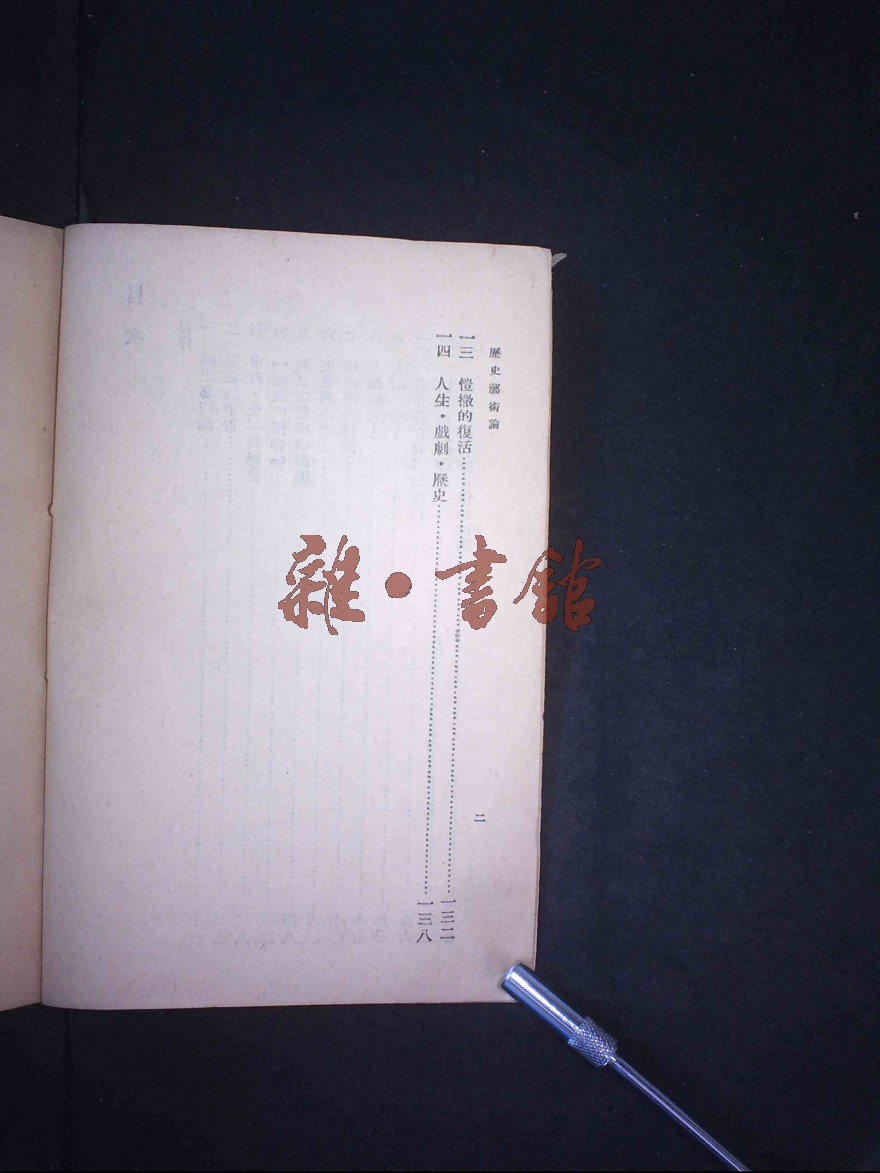 歷史藝術論
一三　愷撒的復活……一三二
一四　人生・戲劇・歷史……一三八
二
雜・書館